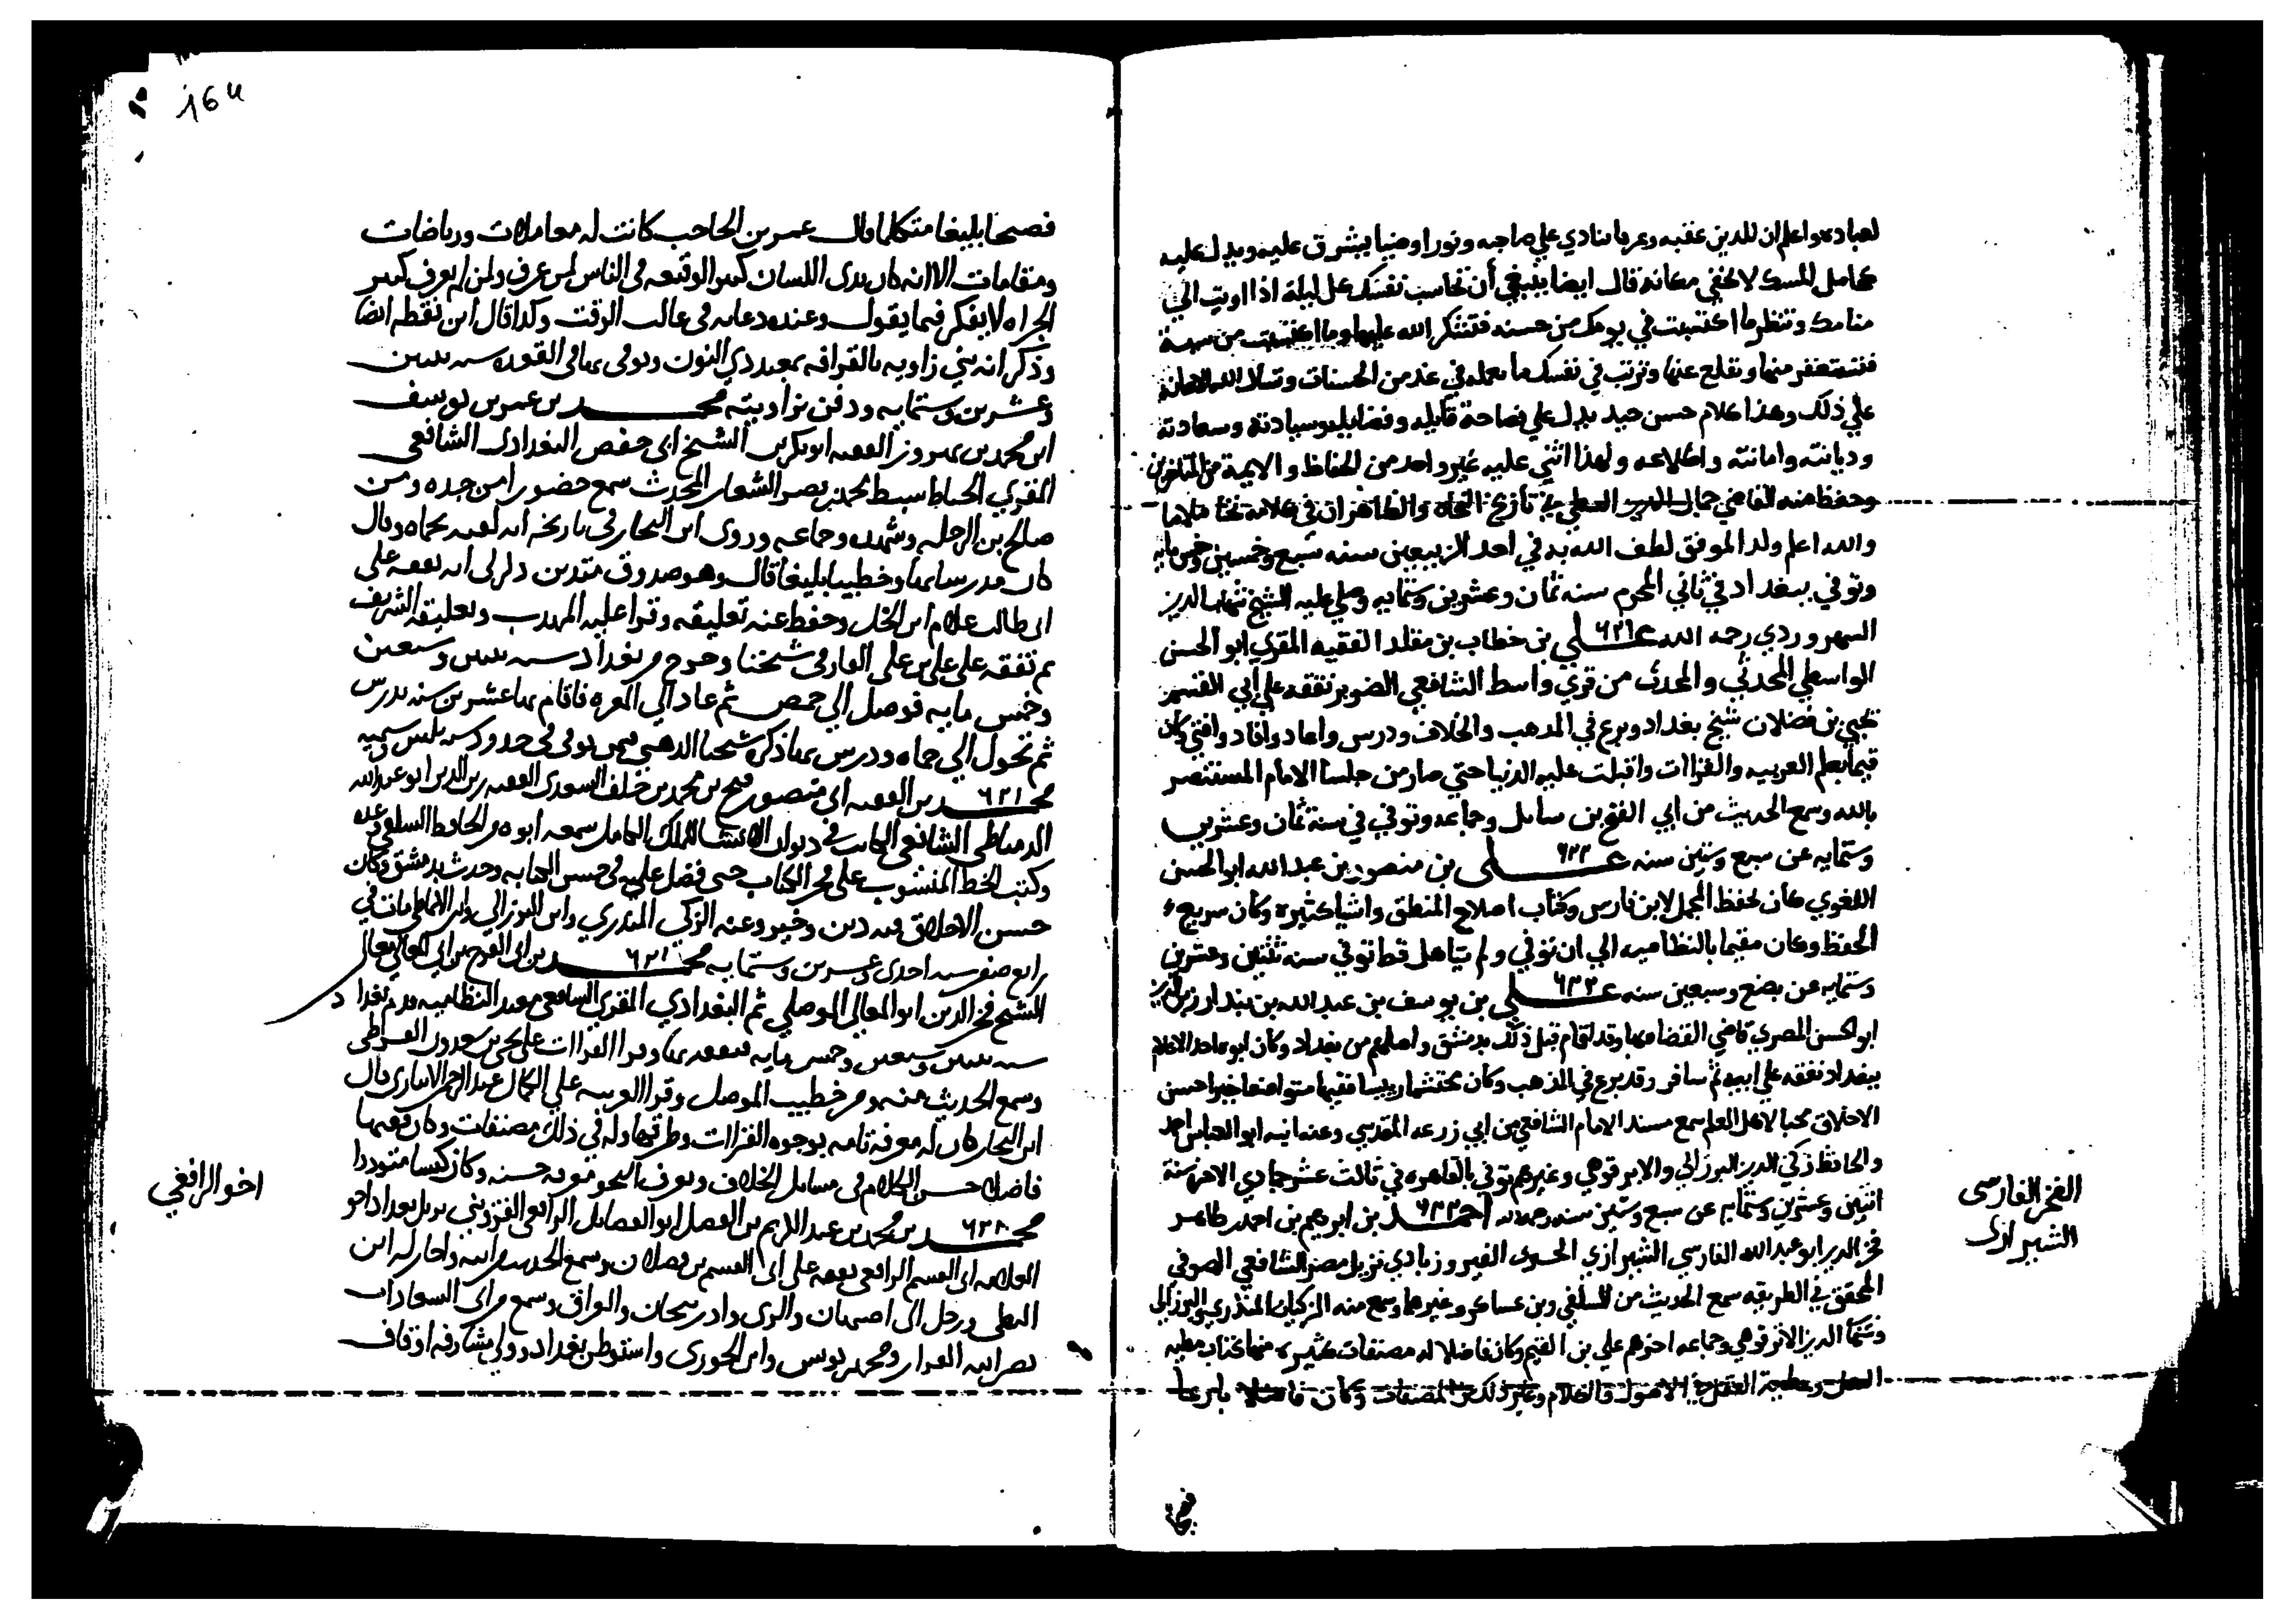 لعباده واعلم ان للدين عقبه وعرفا ينادي علي صاحبه ونورا وضيا يشرق عليه ويدل عليه
كحامل المسك لا يخفي مكانه قال ايضا ينبغي أن تحاسب نفسك كل ليلة اذا اويت الي
منامك وتنظر ما اكتسبت في يومك من حسنه فتشكر الله عليها وما اكتسبت من سيئة
فتستغفر منها وتقلع عنها وترتب في نفسك ما تعمله في غد من الحسنات وتسأل الله الاعانة
علي ذلك وهذا كلام حسن جيد يدل علي فصاحة قايله وفضايله وسيادته وسعادته
وديانته وامانته واطلاعه ولهذا اثني عليه غير واحد من الحفاظ والايمة من المتاخرين
وحفظ منه القاضي جمال الدين القفطي في تأريخ النحاه والظاهر ان في كلامه تحاملا ما
والله اعلم ولد الموفق لطف الله به في احد الربيعين سنه سبع وخمسين وخمس مايه
وتوفي ببغداد في ثاني المحرم سنه ثمان وعشرين وستمايه وصلي عليه الشيخ شهاب الدين
السهروردي رحمه الله علي بن خطاب بن مقلد الفقيه المقري ابو الحسن
الواسطي المحدثي والمحدث من قري واسط الشافعي الضرير تفقه علي ابي القسم
يحيي بن فضلان شيخ بغداد وبرع في المذهب والخلاف ودرس واعاد وافاد وافتي وكان
قيما بعلم العربيه والقراات واقبلت عليه الدنيا حتي صار من جلسا الامام المستنصر
بالله وسمع الحديث من ابي الفتح بن شاتيل وجماعه وتوفي في سنة ثمان وعشرين
وستمايه عن سبع وستين سنه علي ٦٢٢ بن منصور بن عبد الله ابو الحسن
اللغوي كان يحفظ المجمل لابن فارس وكتاب اصلاح المنطق واشيا كثيره وكان سريع
الحفظ وكان مقيما بالنظاميه الي ان توفي ولم يتاهل قط توفي سنه ثنتين وعشرين
وستمايه عن بضع وسبعين سنه علي بن يوسف بن عبد الله بن بندار زين الدين
ابو الحسن المصري قاضي القضاه بها وقد اقام قبل ذلك بدمشق واصلهم من بغداد وكان ابوه احد الاعلام
ببغداد تفقه علي ابيه ثم سافر وقد برع في المذهب وكان محتشما رييسا فقيها متواضعا خيرا حسن
الاخلاق محبا لاهل العلم سمع مسند الامام الشافعي من ابي زرعه المقدسي وعنه ابنه ابو العباس احمد
والحافظ زكي الدين البرزالي والابرقوهي وغيرهم توفي بالقاهره في ثالث عشر جمادي الاخر سنة
اثنين وعشرين وستمايه عن سبع وستين سنه رحمه الله احمد بن ابرهيم بن احمد بن طاهر
فخر الدين ابو عبد الله الفارسي الشيرازي الفيروزبادي نزيل مصر الشافعي الصوفي
المحقق في الطريقه سمع الحديث من السلفي وبن عساكر وغيرهما وسمع منه الزكيان المنذري والبرزالي
الدين الابرقوهي وجماعه اخرهم علي بن القيم وكان فاضلا له مصنفات كثيره منها كتاب مطيه
النقل وعطية العقل في الاصول والكلام وغير ذلك من المصنفات وكان فاضلا بارعا
الفخر الفارسى
الشيرازى
فصيحا
164
فصيحا بليغا متكلما قال عمر بن الحاجب كانت له معاملات ورياضات
ومقامات الا انه كان بذى اللسان كثير الوقيعه فى الناس لمن عرف ولمن لم يعرف كثير
الجراه لا يفكر فيما يقول وعنده دعابه فى غالب الوقت وكذا قال ابن نقطه ايضا
وذكر انه بني زاويه بالقرافه بمعبد ذي النون وتوفى بها فى القعده سنه ثنتين
وعشرين وستمايه ودفن بزاويته محمد بن عمر بن يوسف
ابن محمد بن بهروز الفقيه ابو بكر بن الشيخ ابى حفص البغدادى الشافعى
المقري الخياط سبط محمد بن نصر الشعار المحدث سمع حضورا من جده ومن
صالح بن الرخله وشهده وجماعه وروى ابن النجار فى تاريخه انه لقيه بحماه وقال
كان مدرسا بها وخطيبا بليغا قال وهو صدوق متدين ذكر لى انه تفقه على
ابى طالب غلام ابن الخل وحفظ عنه تعليقه وقرا عليه المهذب وتعليقة الشريف
ثم تفقه على على بن على الفارقى شيخنا وخرج من بغداد سنه ثنتين وسبعين
وخمس مايه فوصل الي حمص ثم عاد الي المعره فاقام بها عشرين سنه يدرس
ثم تحول الي حماه ودرس بها ذكره شيخنا الذهبي فيمن توفى فى حدود سنه ثلثين وستميه
محمد ٦٢١ بن الفقيه ابى منصور فتح بن محمد بن خلف السعدى الفقيه زين الدين ابو عبد الله
الدمياطى الشافعى الكاتب في ديوان الانشا للملك الكامل سمعه ابوه من الحافظ السلفى وعده
وكتب الخط المنسوب على فخر الكتاب حتى فضل عليه فى حسن الكتابه وحدث بدمشق وكان
حسن الاخلاق فيه دين وخير وعنه الزكى المنذري وابن البرزالي وابن الانماطى مات في
رابع صفر سنه احدى وعشرين وستمايه محمد ٦٢١ بن ابى الفرج بن ابى المعالى معالى
الشيخ فخر الدين ابو المعالى الموصلي ثم البغدادي المقري الشافعى معيد النظاميه قدم بغداد
سنه ثنتين وسبعين وخمس مايه فتفقه بها وقرا القراات على يحيى بن سعدون القرطبى
وسمع الحديث منه ومن خطيب الموصل وقرا العربيه على الكمال عبد الرحمن الانبارى قال
ابن النجار كان له معرفه تامه بوجوه القراات وطرقها وله في ذلك مصنفات وكان فقيها
فاضلا حسن الكلام فى مسايل الخلاف ويعرف النحو معرفه حسنه وكان كيسا متوددا
محمد ٦٢٨ بن محمد بن عبد الكريم بن الفضل ابو الفضايل الرافعى القزويني نزيل بغداد اخو
العلامه ابى القسم الرافعى تفقه على ابى القسم بن فضلان وسمع الحديث من ابيه واجاز له ابن
البطى ورحل الى اصبهان والرى واذربيجان والعراق وسمع من ابى السعادات
نصر الله القزاز ومحمد يونس وابن الجوزى واستوطن بغداد وولى مشارفه اوقاف
اخو الرافعي